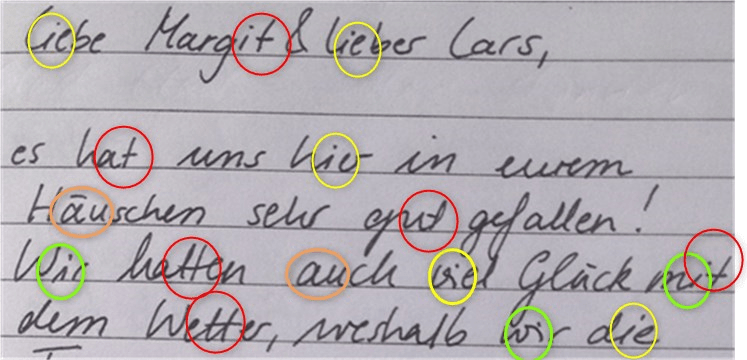 Liebe Margit & lieber Lars,
es hat uns hier in eurem
Häuschen sehr gut gefallen!
Wir hatten auch viel Glück mit
dem Wetter, weshalb wir die